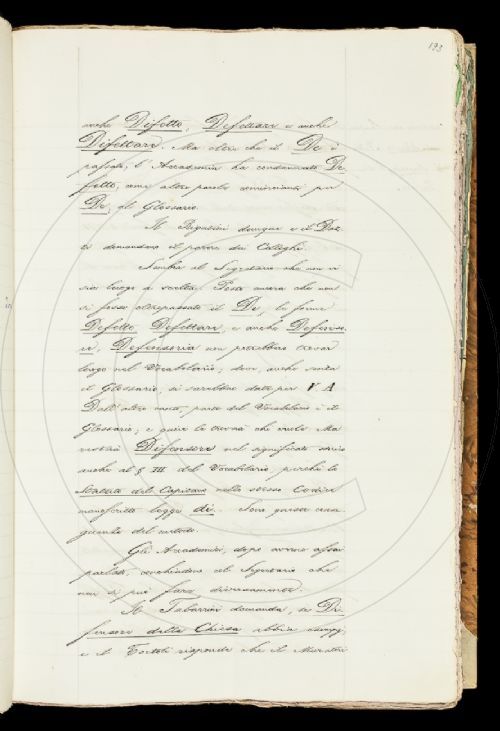 193
anche Difetto, Difettare e anche
Difettoare. Ma oltre che il De è
passato, l'Accademia ha condannato De
fetto, come altre parole comincianti per
De, al Glossario.
Il Rigutini dunque e il Daz
zi domandano il parere dei Colleghi.
Sembra al Segretario che non vi
sia luogo a scelta. Posto ancora che non
si fosse oltrepassato il De, le forme
Defetto, Defettare, e anche Defenso
re, Defensoria non potrebbero trovar
luogo nel Vocabolario; dove, anche senza
il Glossario, si sarebbe dato per V. A.
Dall'altro canto, parte del Vocabolario è il
Glossario; e quivi le troverà chi vuole. Ma
resterà Difensore nel significato storico
anche al § III del Vocabolario, perchè lo
Statuto del Capitano nello stesso Codice
manoscritto legge di. Sono queste cose
quando del metodo.
Gli Accademici, dopo avervi assai
parlato, concludono col Segretario che
non si può fare diversamente.
Il Tabarrini domanda, se De
fensore della Chiesa abbia esempj,
e il Tortoli risponde che il Muratori